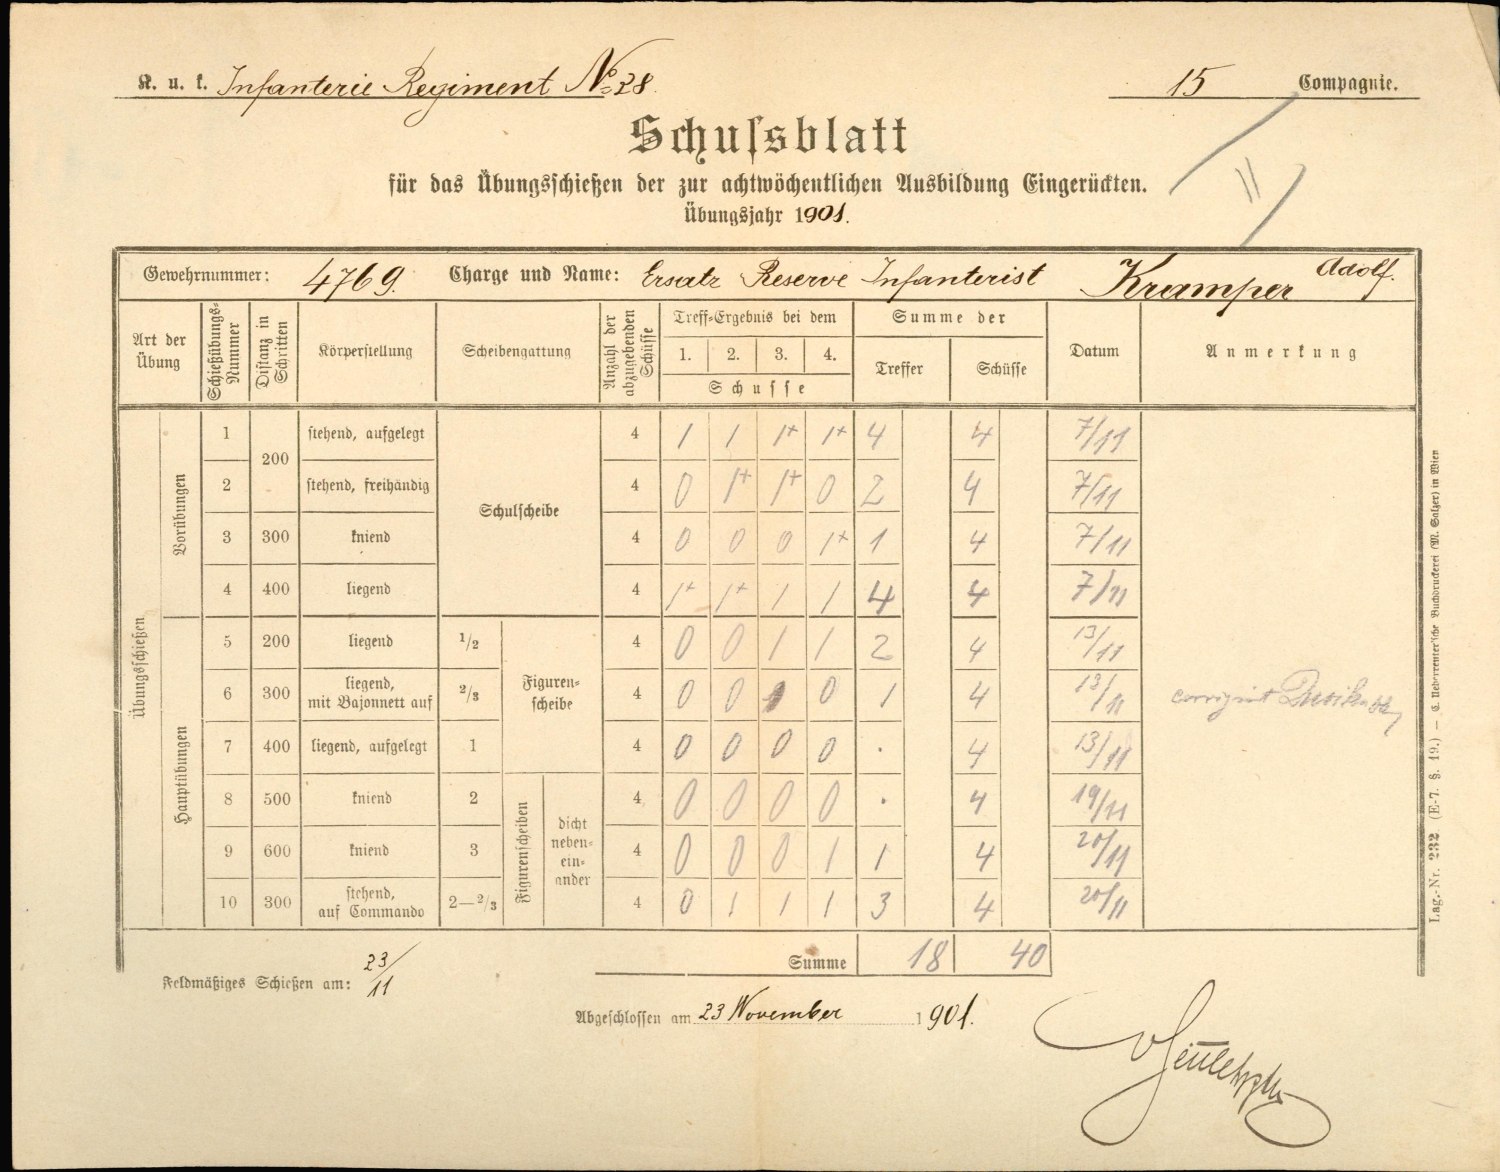 K. u. k. Infanterie Regiment No 28. 15 Compagnie.
Schussblatt
für das Übungsschießen der zur achtwöchentlichen Ausbildung Eingerückten.
Übungsjahr 1901.
II
Gewehrnummer: 4769. Charge und Name: Ersatz Reserve Infanterist Kramper Adolf.
Art der Übung
Schießübungs-Nummer
Distanz in Schritten
Körperstellung
Scheibengattung
Anzahl der abzugebenden Schüsse
Treff-Ergebnis bei dem
1. 2. 3. 4.
Schusse
Summe der
Treffer Schüsse
Datum
Anmerkung
Übungsschießen
Vorübungen
1 200 stehend, aufgelegt Schulscheibe 4 1 1 1+ 1+ 4 4 7/11
2 stehend, freihändig 4 0 1+ 1+ 0 2 4 7/11
3 300 kniend 4 0 0 0 1+ 1 4 7/11
4 400 liegend 4 1+ 1+ 1 1 4 4 7/11
Hauptübungen
5 200 liegend 1/2 Figuren-scheibe 4 0 0 1 1 2 4 13/11
6 300 liegend, mit Bajonnett auf 2/3 4 0 0 1 0 1 4 13/11 corrigirt
7 400 liegend, aufgelegt 1 4 0 0 0 0 . 4 13/11
8 500 kniend 2 Figurenscheiben dicht neben-ein-ander 4 0 0 0 0 . 4 19/11
9 600 kniend 3 4 0 0 0 1 1 4 20/11
10 300 stehend, auf Commando 2—2/3 4 0 1 1 1 3 4 20/11
Summe 18 40
Feldmäßiges Schießen am: 23/11
Abgeschlossen am 23 November 1901.
Lag.-Nr. 232 (E-7. §. 19.) — C. Ueberreuter'sche Buchdruckerei (M. Salzer) in Wien